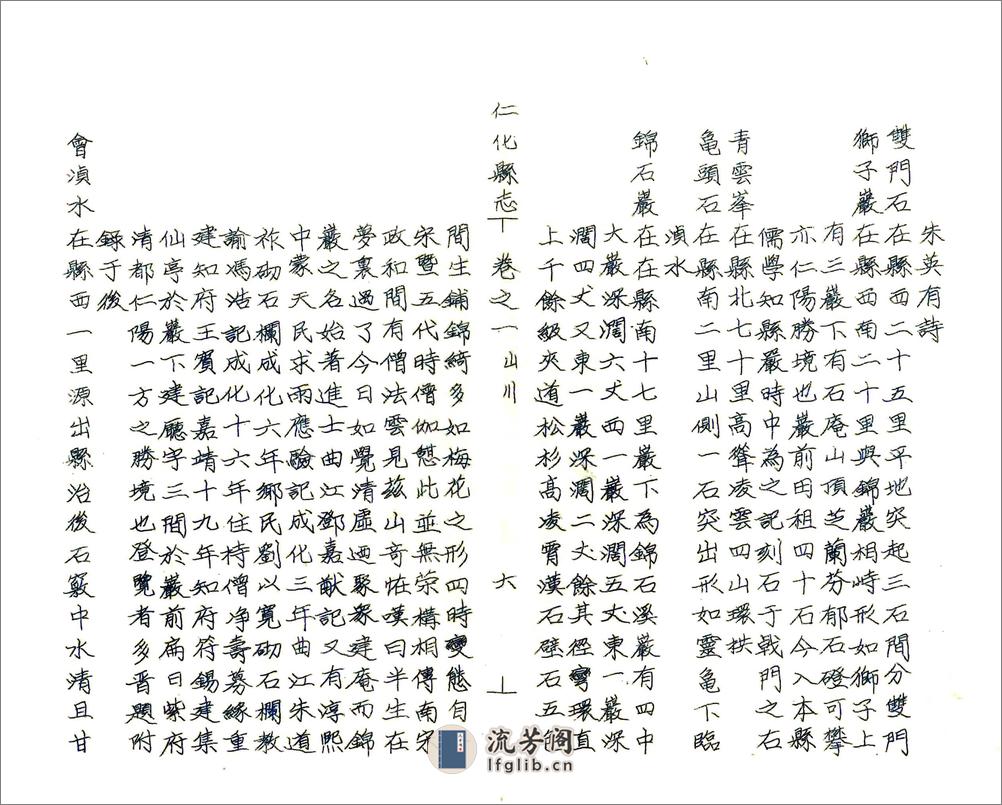 朱英有詩
雙門石在縣西二十五里平地突起三石間分雙門
獅子巖在縣西南二十里與錦巖相峙形如獅子上
有三巖下有石庵山頂芝蘭芬郁石磴可攀
亦仁陽勝境也巖前田租四十石今入本縣
儒學知縣嚴時中為之記刻石于戟門之右
青雲峯在縣北七十里高聳凌雲四山環拱
龜頭石在縣南二里山側一石突出形如靈龜下臨
湞水
錦石巖在在縣南十七里巖下為錦石溪巖有四中
大巖深濶六丈西一巖深濶五丈東一巖深
濶四丈又東一巖深濶二丈餘其徑彎環直
上千餘級夾道松杉高凌霄漢石壁石五
仁化縣志 卷之一 山川 六
間生鋪錦綺多如梅花之形四時變態自
宋暨五代時僧伽憩此並無荣構相傳南宋
政和間有僧法雲見茲山奇怪嘆曰半生在
夢裏過了今日如覺清虛迺聚衆建庵而錦
巖之名始著進士曲江鄧嘉猷記又有淳熙
中蒙天民求雨應驗記成化三年曲江朱道
祚砌石欄成化六年鄉民劉以寬砌石欄教
諭馮浩記成化十六年住持僧净壽募緣重
建知府王賓記嘉靖十九年知府符錫建集
仙亭於巖下建廳宇三間於巖前扁曰紫府
清都仁陽一方之勝境也登覽者多晋題附
錄于後
會湞水在縣西一里源出縣治後石竅中水清且甘
流芳阁
lfglib.cn